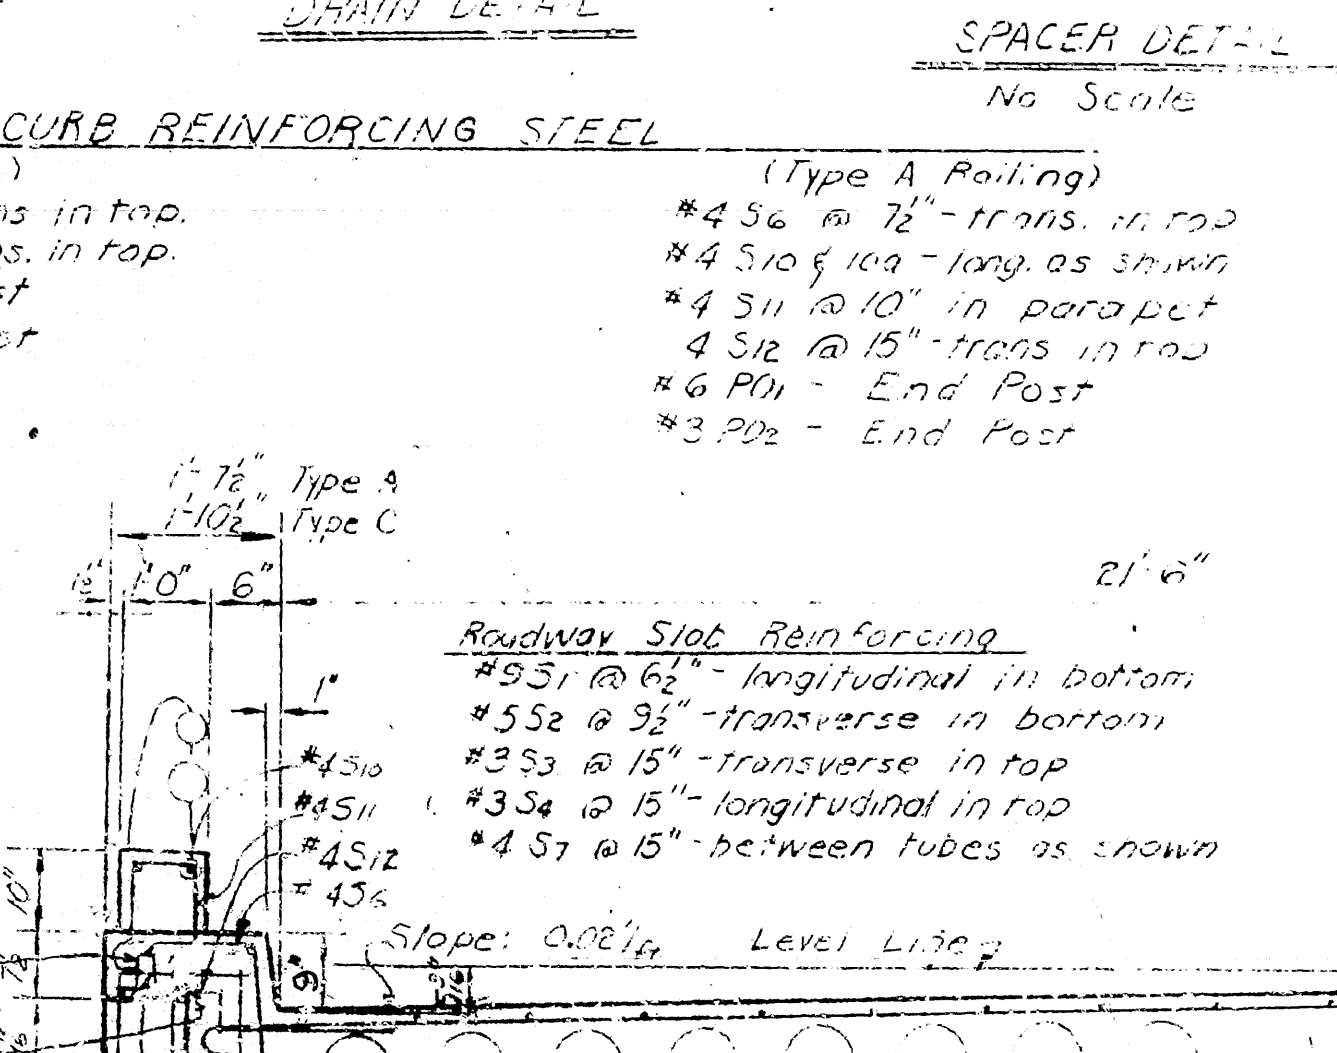 DRAIN DETAIL
SPACER DETAIL
No Scale
CURB REINFORCING STEEL
)
(Type A Railing)
ns in top.
s. in top.
st
st
#4 S6 @ 7½" - trans. in top
#4 S10 & 10a - long. as shown
#4 S11 @ 10" in parapet
4 S12 @ 15" - trans in top
#6 PO1 - End Post
#3 PO2 - End Post
1'-7½" Type A
1'-10½" Type C
1½" 1'0" 6"
21'-6"
Roadway Slab Reinforcing
#9S1 @ 6½" - longitudinal in bottom
#5S2 @ 9½" - transverse in bottom
#3S3 @ 15" - transverse in top
#3S4 @ 15" - longitudinal in top
#4 S7 @ 15" - between tubes as shown
1"
#4S10
#4S11
#4S12
#4S6
10"
Slope: 0.02'/ft Level Line
9"